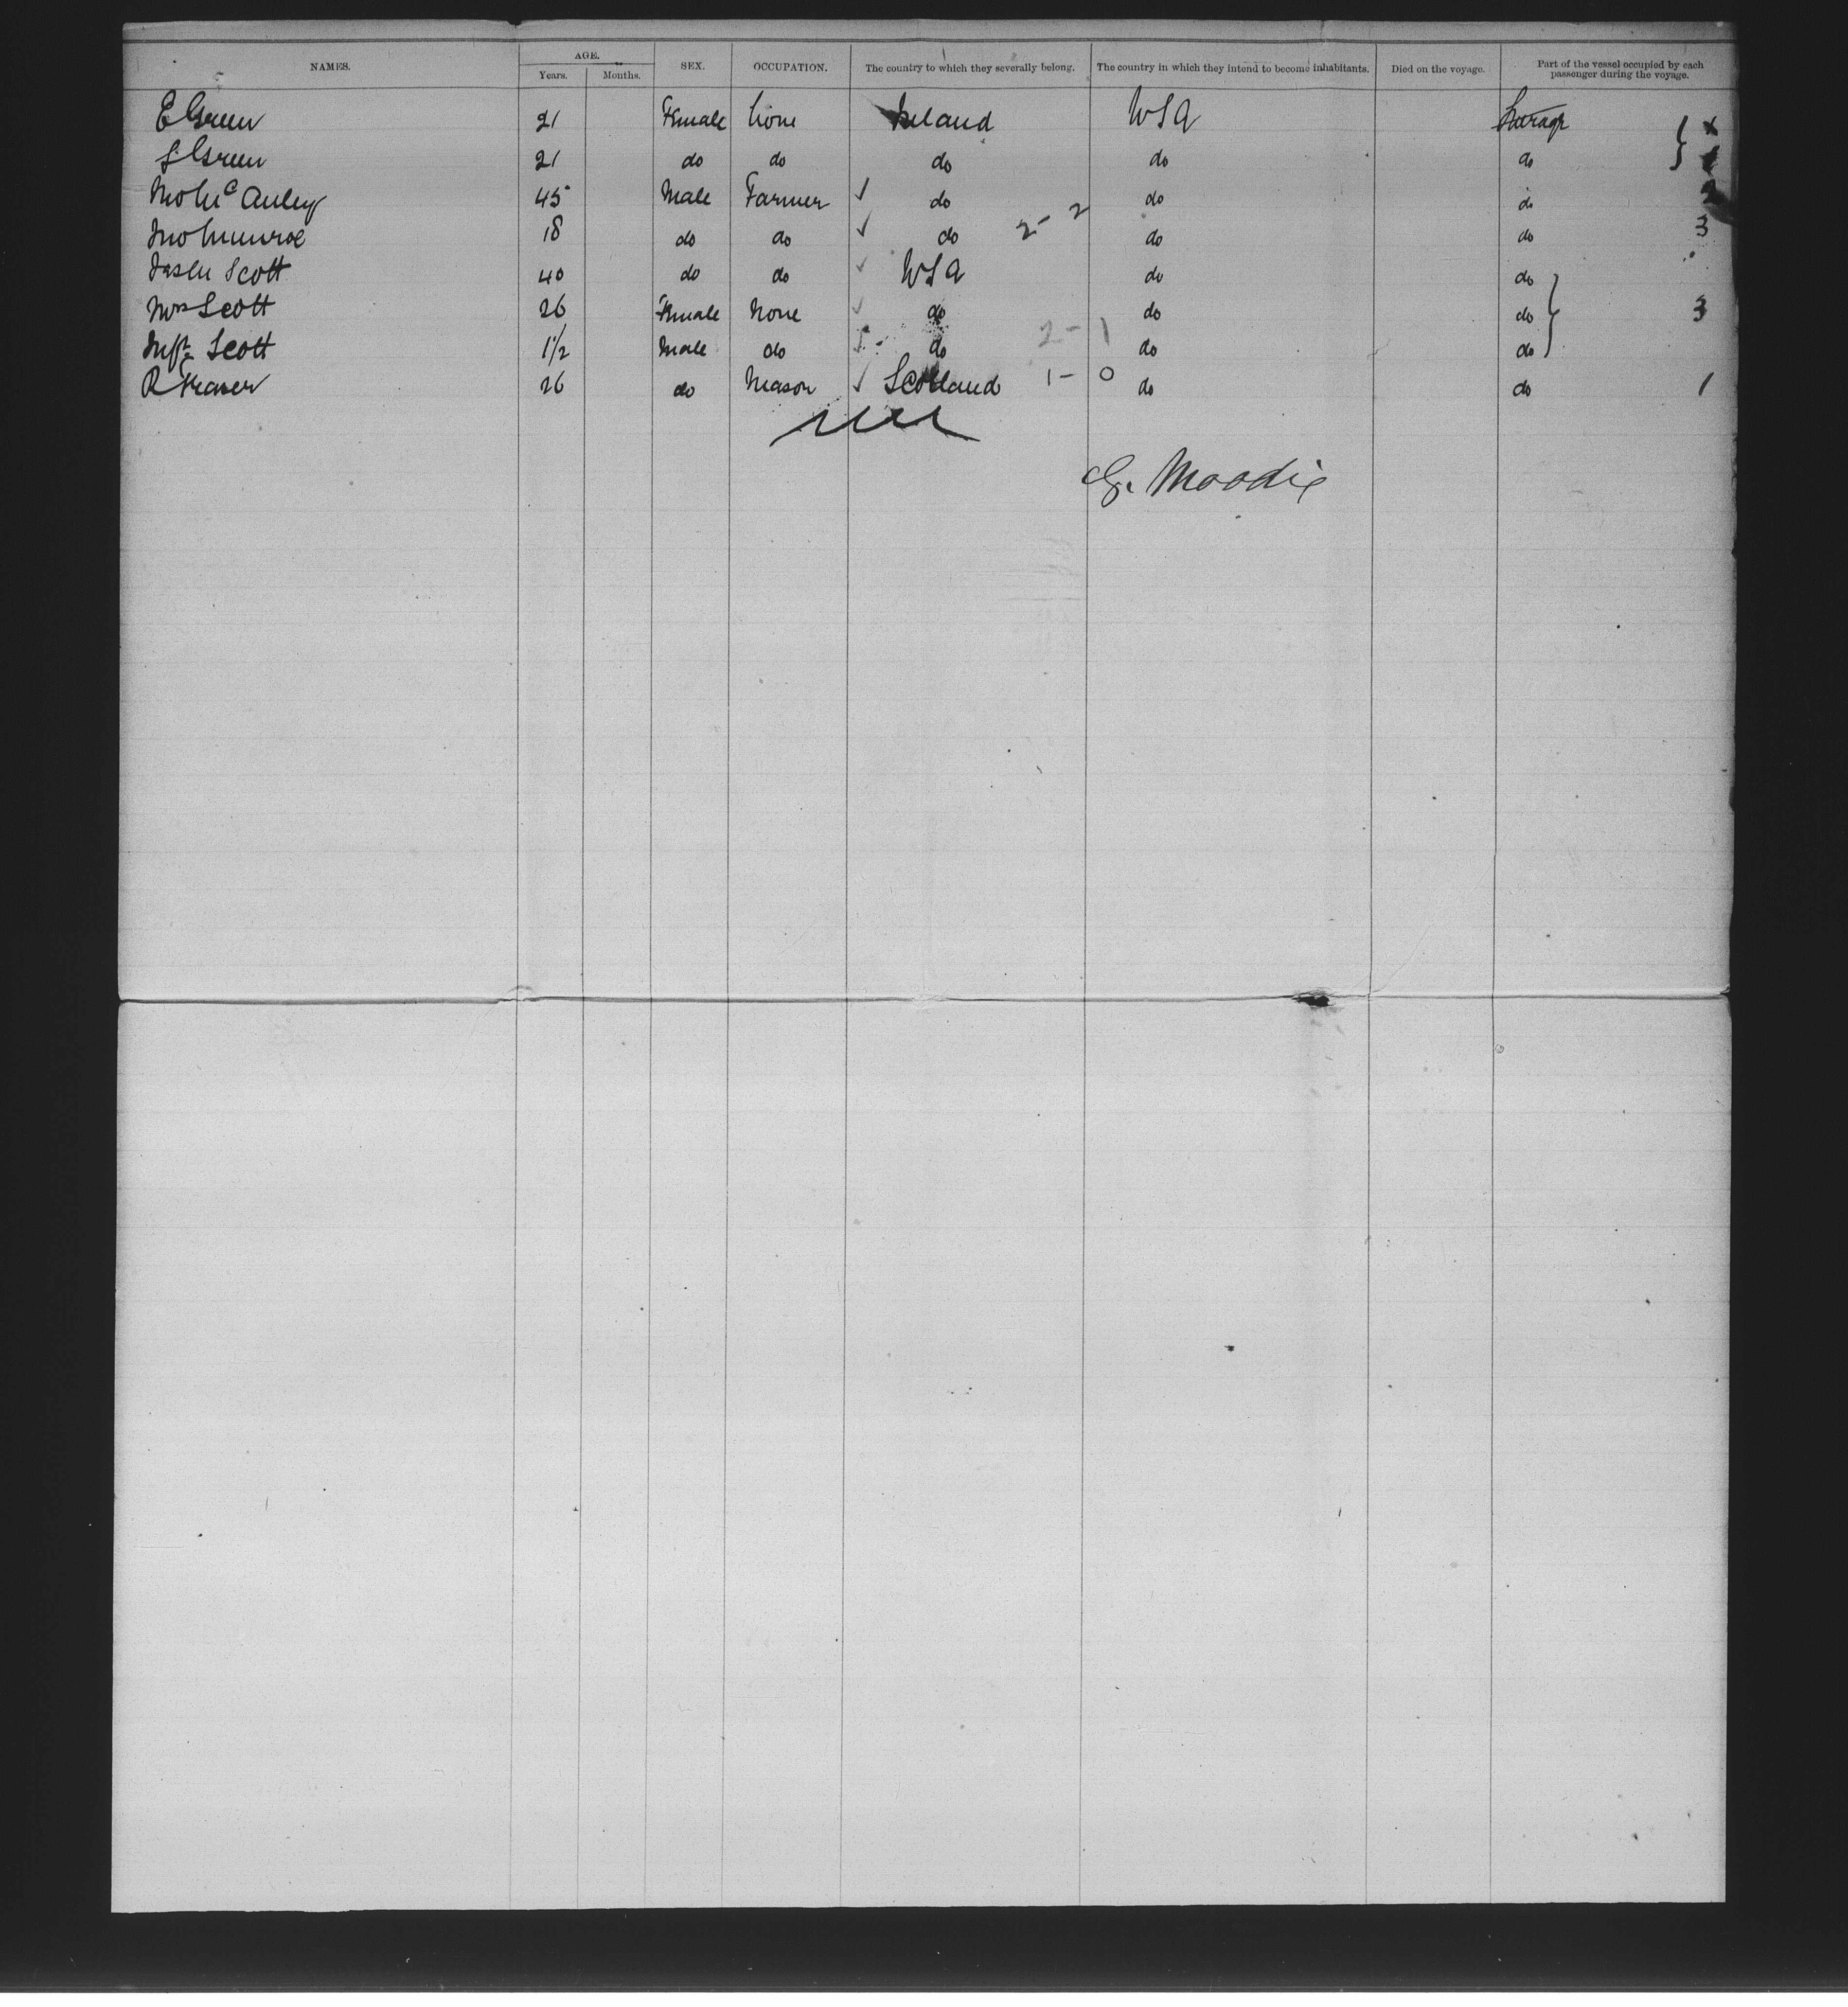 NAMES. AGE. SEX. OCCUPATION. The country to which they severally belong. The country in which they intend to become inhabitants. Died on the voyage. Part of the vessel occupied by each passenger during the voyage.
Years. Months.
E Green 21 Female None Ireland USA Steerage } x
S Green 21 do do do do do
Jno McAuley 45 Male Farmer ✓ do do do 2
Jno Munroe 18 do do ✓ do 2-2 do do 3
Scott 40 do do ✓ USA do do
Mrs Scott 26 Female None ✓ do do do } 3
Inft Scott 1 1/2 Male do do 2-1 do do
R Fraser 26 do Mason ✓ Scotland 1-0 do do 1
G. Moodie